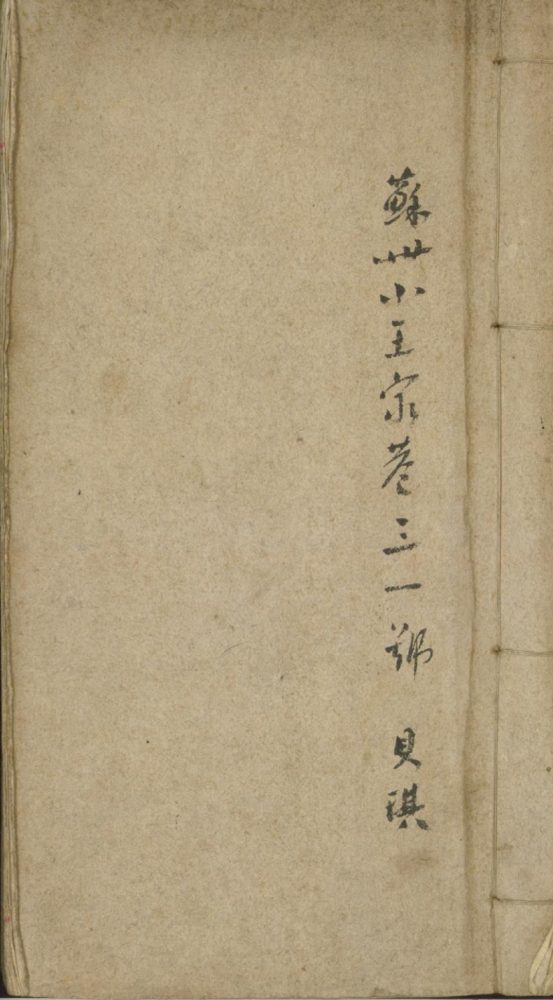 蘇州小王家巷三一號 貝琪